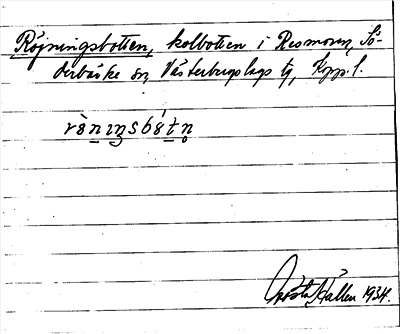 Röjningsbotten, kolbotten i Resmoren, Sö-
derbärke sn, Västerbergslags tg, Kopp. l.
rö̀nɪŋsbótn̥
Gösta Källen 1934.